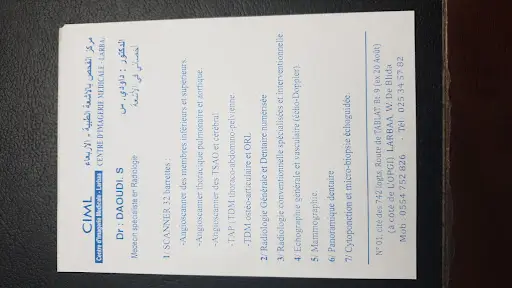 CIML
Centre d'Imagerie Médicale Larbaa
مركز الفحص بالأشعة الطبية - الأربعاء
CENTRE D'IMAGERIE MEDICALE - LARBAA
Dr : DAOUDI. S
Médecin spécialiste en Radiologie
الدكتور : داودي. س
أخصائي في الأشعة
1/ SCANNER 32 barrettes :
-Angioscanner des membres inférieurs et supérieurs.
-Angioscanner thoracique pulmonaire et aortique.
-Angioscanner des TSAO et cérébral.
-TAP/TDM thoraco-abdomino-pelvienne.
-TDM ostéo-articulaire et ORL.
2/ Radiologie Générale et Dentaire numérisée
3/ Radiologie conventionnelle spécialisées et interventionnelle
4/ Echographie générale et vasculaire (écho-Doppler).
5/ Mammographie.
6/ Panoramique dentaire
7/ Cytoponction et micro-biopsie échoguidée.
N° 01, cité des 742 logts, Route de TABLAT Bt. 9 (ex 20 Août)
(à coté de L'OPGI), LARBAA, W. De Blida
Mob : 0554 752 826 - Tél : 025 34 57 82